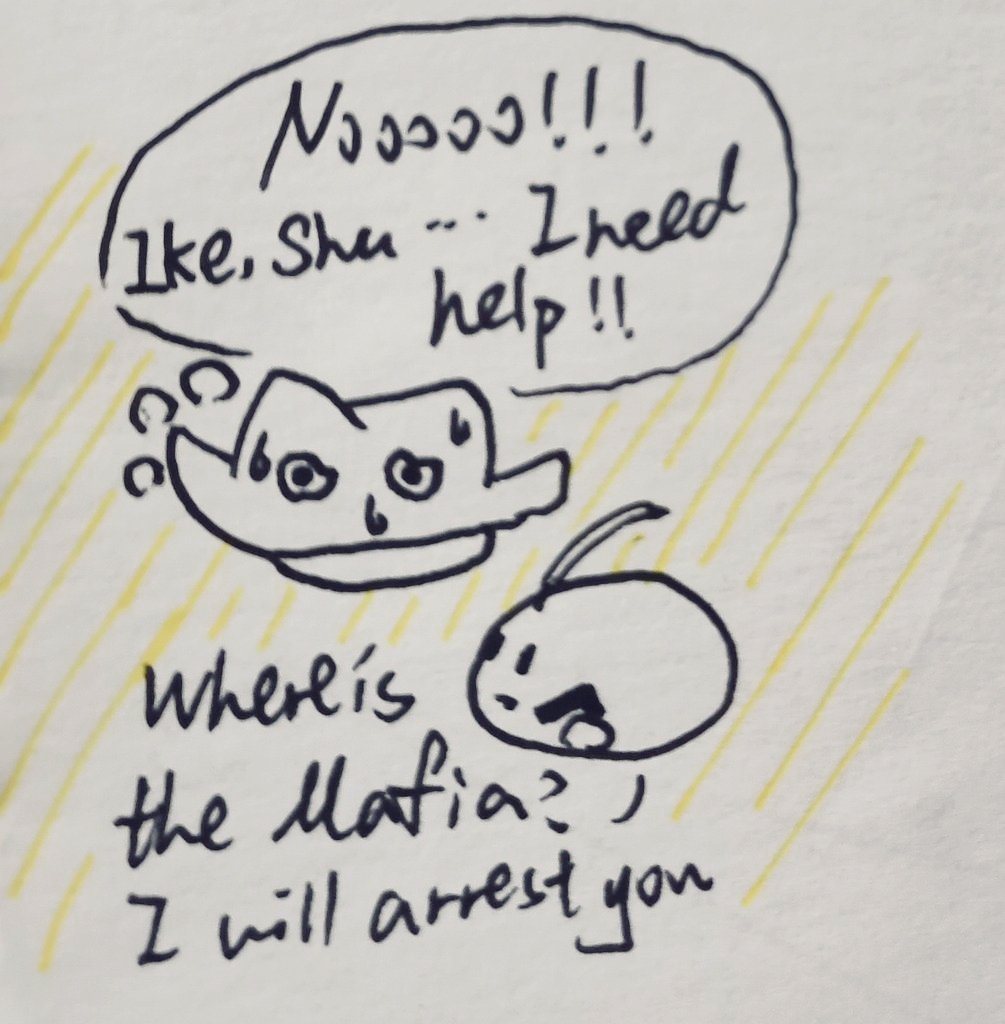 Nooooo!!!
Ike, Shu ... I need
help!!
Where is
the Mafia?
I will arrest you